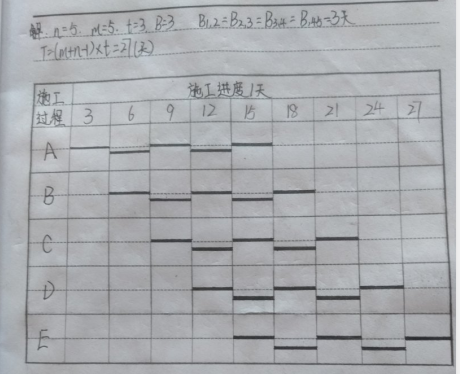 解: n=5, m=5, t=3, B=3 B1,2=B2,3=B3,4=B4,5=3天
T=(m+n-1)×t=27(天)
施工过程 施工进度/天
3 6 9 12 15 18 21 24 27
A
B
C
D
E